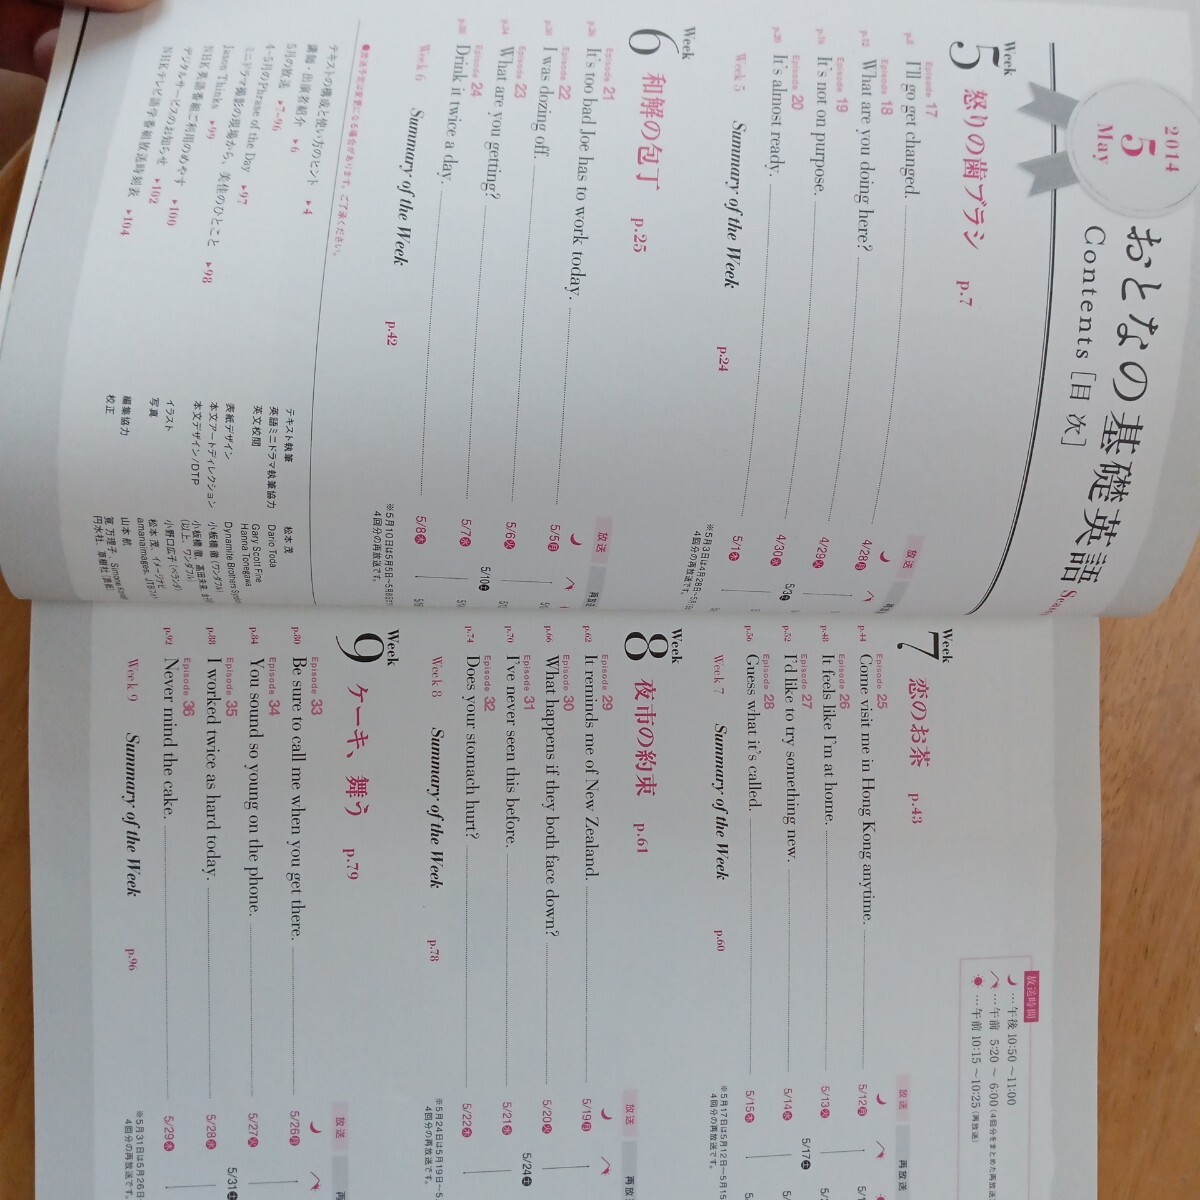 2014
5
May
おとなの基礎英語
Contents［目次］
Week
5 怒りの歯ブラシ p.7
放送
Episode 17
p.8 I'll go get changed. 4/28㊊
Episode 18
p.12 What are you doing here? 4/29㊋
Episode 19
p.16 It's not on purpose. 4/30㊌
Episode 20
p.20 It's almost ready. 5/1㊍
5/3㊏
Week 5 Summary of the Week p.24
※5月3日は4月28日～5月1
4回分の再放送です。
Week
6 和解の包丁 p.25
放送
Episode 21
p.26 It's too bad Joe has to work today. 5/5㊊
Episode 22
p.30 I was dozing off. 5/6㊋
Episode 23
p.34 What are you getting? 5/7㊌
Episode 24
p.38 Drink it twice a day. 5/8㊍
5/10㊏
Week 6 Summary of the Week p.42
※5月10日は5月5日～5月8日
4回分の再放送です。
●放送予定は変更になる場合があります。ご了承ください。
テキストの構成と使い方のヒント ▶4
講師・出演者紹介 ▶6
5月の放送 ▶7～96
4-5月のPhrase of the Day ▶97
ミニドラマ撮影の現場から、美佳のひとこと ▶98
Jason Thinks ▶99
NHK英語番組ご利用のめやす ▶100
デジタルサービスのお知らせ ▶102
NHKテレビ語学番組放送時刻表 ▶104
テキスト執筆 松本 茂
英語ミニドラマ執筆協力 Dario Toda
英文校閲 Gary Scott Fine
Hanna Tonegawa
表紙デザイン Dynamite Brothers Syndi
本文アートディレクション 小板橋 徹（ワンダフル）
本文デザイン/DTP 小板橋 徹、高田未来、
（以上、ワンダフル）
イラスト 小野口広子（ベランダ）
写真 松本 茂、イメージナビ
amanaimages、JTBフォ
編集協力 山本 航
校正 寛 万理子、Simone
円水社、草樹社
放送時間
…午後 10:50～11:00
…午前 5:20～6:00（4回分をまとめた再放送
…午前 10:15～10:25（再放送）
Week
7 恋のお茶 p.43
放送 再放送
Episode 25
p.44 Come visit me in Hong Kong anytime. 5/12㊊
Episode 26
p.48 It feels like I'm at home. 5/13㊋
Episode 27
p.52 I'd like to try something new. 5/14㊌
Episode 28
p.56 Guess what it's called. 5/15㊍
5/17㊏
Week 7 Summary of the Week p.60
※5月17日は5月12日～5月15
4回分の再放送です。
Week
8 夜市の約束 p.61
放送 再放
Episode 29
p.62 It reminds me of New Zealand. 5/19㊊
Episode 30
p.66 What happens if they both face down? 5/20㊋
Episode 31
p.70 I've never seen this before. 5/21㊌
Episode 32
p.74 Does your stomach hurt? 5/22㊍
5/24㊏
Week 8 Summary of the Week p.78
※5月24日は5月19日～5
4回分の再放送です。
Week
9 ケーキ、舞う p.79
放送
Episode 33
p.80 Be sure to call me when you get there. 5/26㊊
Episode 34
p.84 You sound so young on the phone. 5/27㊋
Episode 35
p.88 I worked twice as hard today. 5/28㊌
Episode 36
p.92 Never mind the cake. 5/29㊍
5/31㊏
Week 9 Summary of the Week p.96
※5月31日は5月26日
4回分の再放送です。